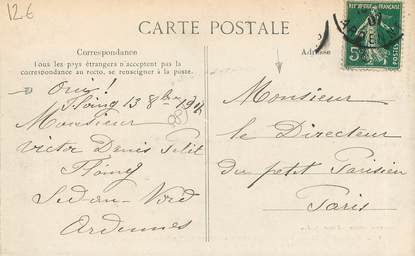 126
CARTE POSTALE
Correspondance
Tous les pays étrangers n'acceptent pas la
correspondance au recto, se renseigner à la poste.
Adresse
Oui!
Floing 13 8bre
Monsieur
Victor Denis Petit
Floing
Sedan-Nord
Ardennes
Monsieur
le Directeur
du petit Parisien
Paris